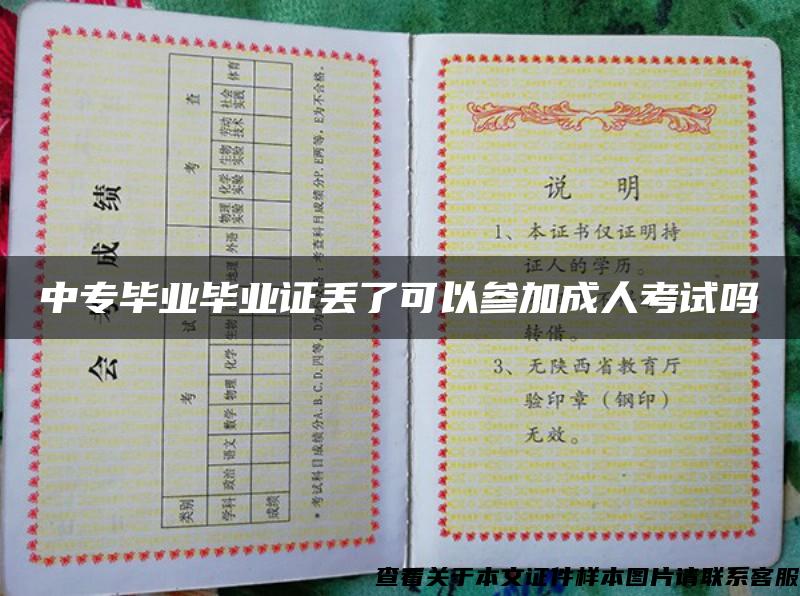 会考成绩
类别 考试 考查
学科 政治 语文 数学 物理 化学 生物 地理 外语 物理实验 化学实验 生物实验 劳动技术 社会实践 体育
成绩
*考试科目成绩分A.B.C.D.四等，D为
：考查科目成绩分P、E两等，E为不合格。
说 明
1、本证书仅证明持
证人的学历。
转借。
3、无陕西省教育厅
验印章（钢印）
无效。
中专毕业毕业证丢了可以参加成人考试吗
查看关于本文证件样本图片请联系客服